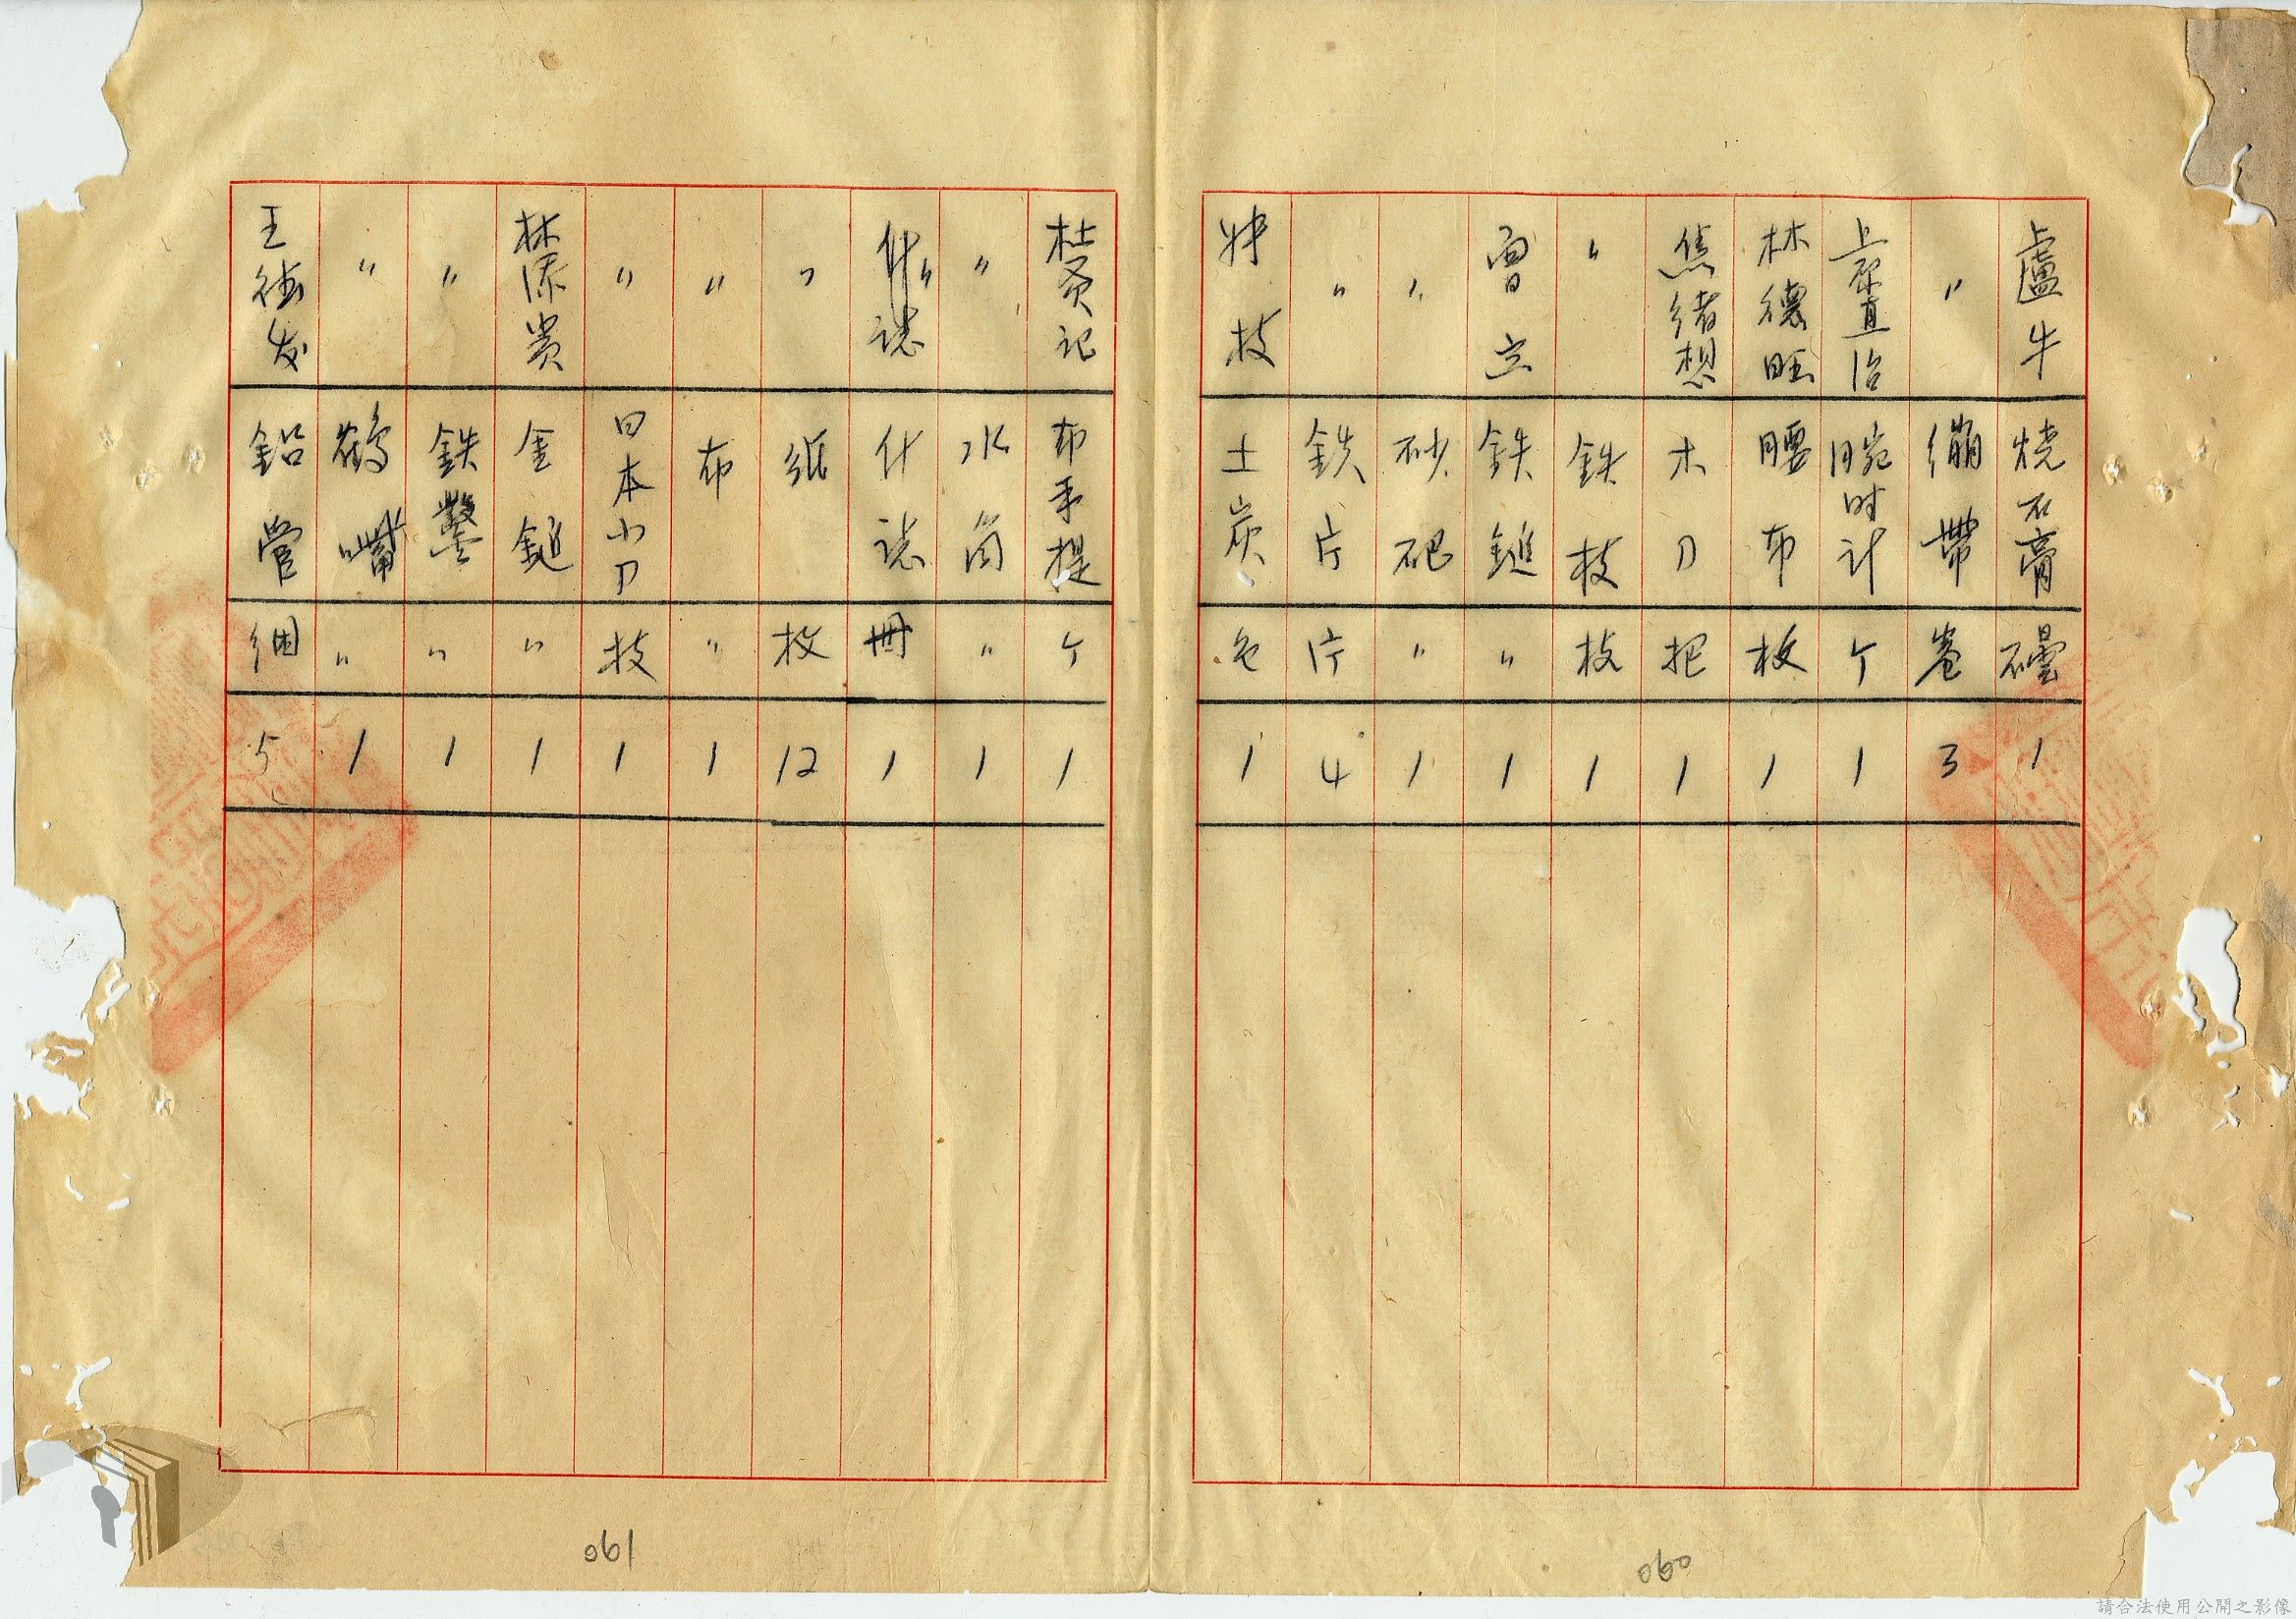 盧牛 燒石膏 罎 1
〃 繃帶 卷 3
上 直治 腕时计 个 1
林德旺 腰布 枚 1
焦緒想 木刀 把 1
〃 鉄枝 枝 1
曽 鉄鎚 〃 1
〃 砂砲 〃 1
〃 鉄片 片 4
枝 土炭 包 1
杜贤记 布手提 个 1
〃 水筒 〃 1
〃 什誌 冊 1
〃 纸 枚 12
〃 布 〃 1
〃 日本小刀 枝 1
林添贵 金鎚 〃 1
〃 鉄鑿 〃 1
〃 鶴嘴 〃 1
王德发 鉛管 綑 5
060
061
請合法使用公開之影像